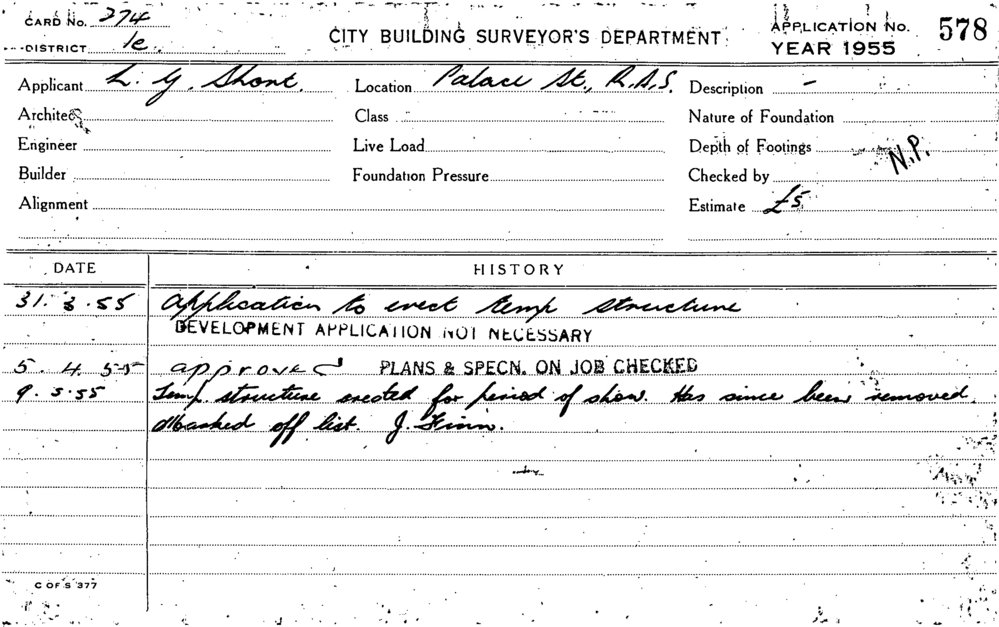 CARD No. 274
DISTRICT 1c.
CITY BUILDING SURVEYOR'S DEPARTMENT
APPLICATION No. 578
YEAR 1955
Applicant L. G. Short. Location Palace St., R.A.S. Description -
Architect Class Nature of Foundation
Engineer Live Load Depth of Footings N.P.
Builder Foundation Pressure Checked by
Alignment Estimate £5
DATE HISTORY
31. 3. 55 Application to erect temp structure
DEVELOPMENT APPLICATION NOT NECESSARY
5. 4. 55 approved PLANS & SPECN. ON JOB CHECKED
9. 5. 55 Temp. structure erected for period of show. Has since been removed.
Marked off list. J. Finn.
C OF S 377